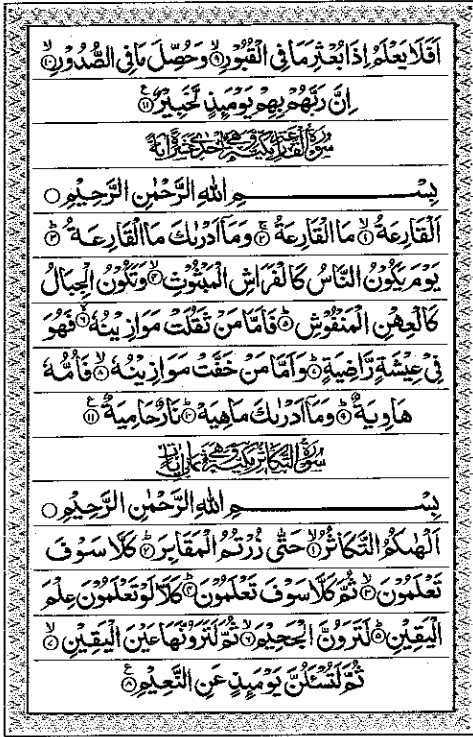 اَفَلَا یَعْلَمُ اِذَا بُعْثِرَ مَا فِی الْقُبُوْرِ ۙ۹ وَحُصِّلَ مَا فِی الصُّدُوْرِ ۙ۱۰
اِنَّ رَبَّهُمْ بِهِمْ یَوْمَىِٕذٍ لَّخَبِیْرٌ ۱۱
سُوْرَةُ الْقَارِعَةِ مَكِّیَّةٌ وَّهِیَ اِحْدٰى عَشْرَةَ اٰیَةً
بِسْــــــــــــمِ اللهِ الرَّحْمٰنِ الرَّحِیْمِ ○
اَلْقَارِعَةُ ۙ۱ مَا الْقَارِعَةُ ۚ۲ وَمَاۤ اَدْرٰىكَ مَا الْقَارِعَةُ ؕ۳
یَوْمَ یَكُوْنُ النَّاسُ كَالْفَرَاشِ الْمَبْثُوْثِ ۙ۴ وَتَكُوْنُ الْجِبَالُ
كَالْعِهْنِ الْمَنْفُوْشِ ؕ۵ فَاَمَّا مَنْ ثَقُلَتْ مَوَازِیْنُهٗ ۙ۶ فَهُوَ
فِیْ عِیْشَةٍ رَّاضِیَةٍ ؕ۷ وَاَمَّا مَنْ خَفَّتْ مَوَازِیْنُهٗ ۙ۸ فَاُمُّهٗ
هَاوِیَةٌ ؕ۹ وَمَاۤ اَدْرٰىكَ مَاهِیَهْ ؕ۱۰ نَارٌ حَامِیَةٌ ۱۱
سُوْرَةُ التَّكَاثُرِ مَكِّیَّةٌ وَّهِیَ ثَمَانِیْ اٰیَاتٍ
بِسْــــــــــــمِ اللهِ الرَّحْمٰنِ الرَّحِیْمِ ○
اَلْهٰىكُمُ التَّكَاثُرُ ۙ۱ حَتّٰى زُرْتُمُ الْمَقَابِرَ ؕ۲ كَلَّا سَوْفَ
تَعْلَمُوْنَ ۙ۳ ثُمَّ كَلَّا سَوْفَ تَعْلَمُوْنَ ؕ۴ كَلَّا لَوْ تَعْلَمُوْنَ عِلْمَ
الْیَقِیْنِ ؕ۵ لَتَرَوُنَّ الْجَحِیْمَ ۙ۶ ثُمَّ لَتَرَوُنَّهَا عَیْنَ الْیَقِیْنِ ۙ۷
ثُمَّ لَتُسْـَٔلُنَّ یَوْمَىِٕذٍ عَنِ النَّعِیْمِ ۸